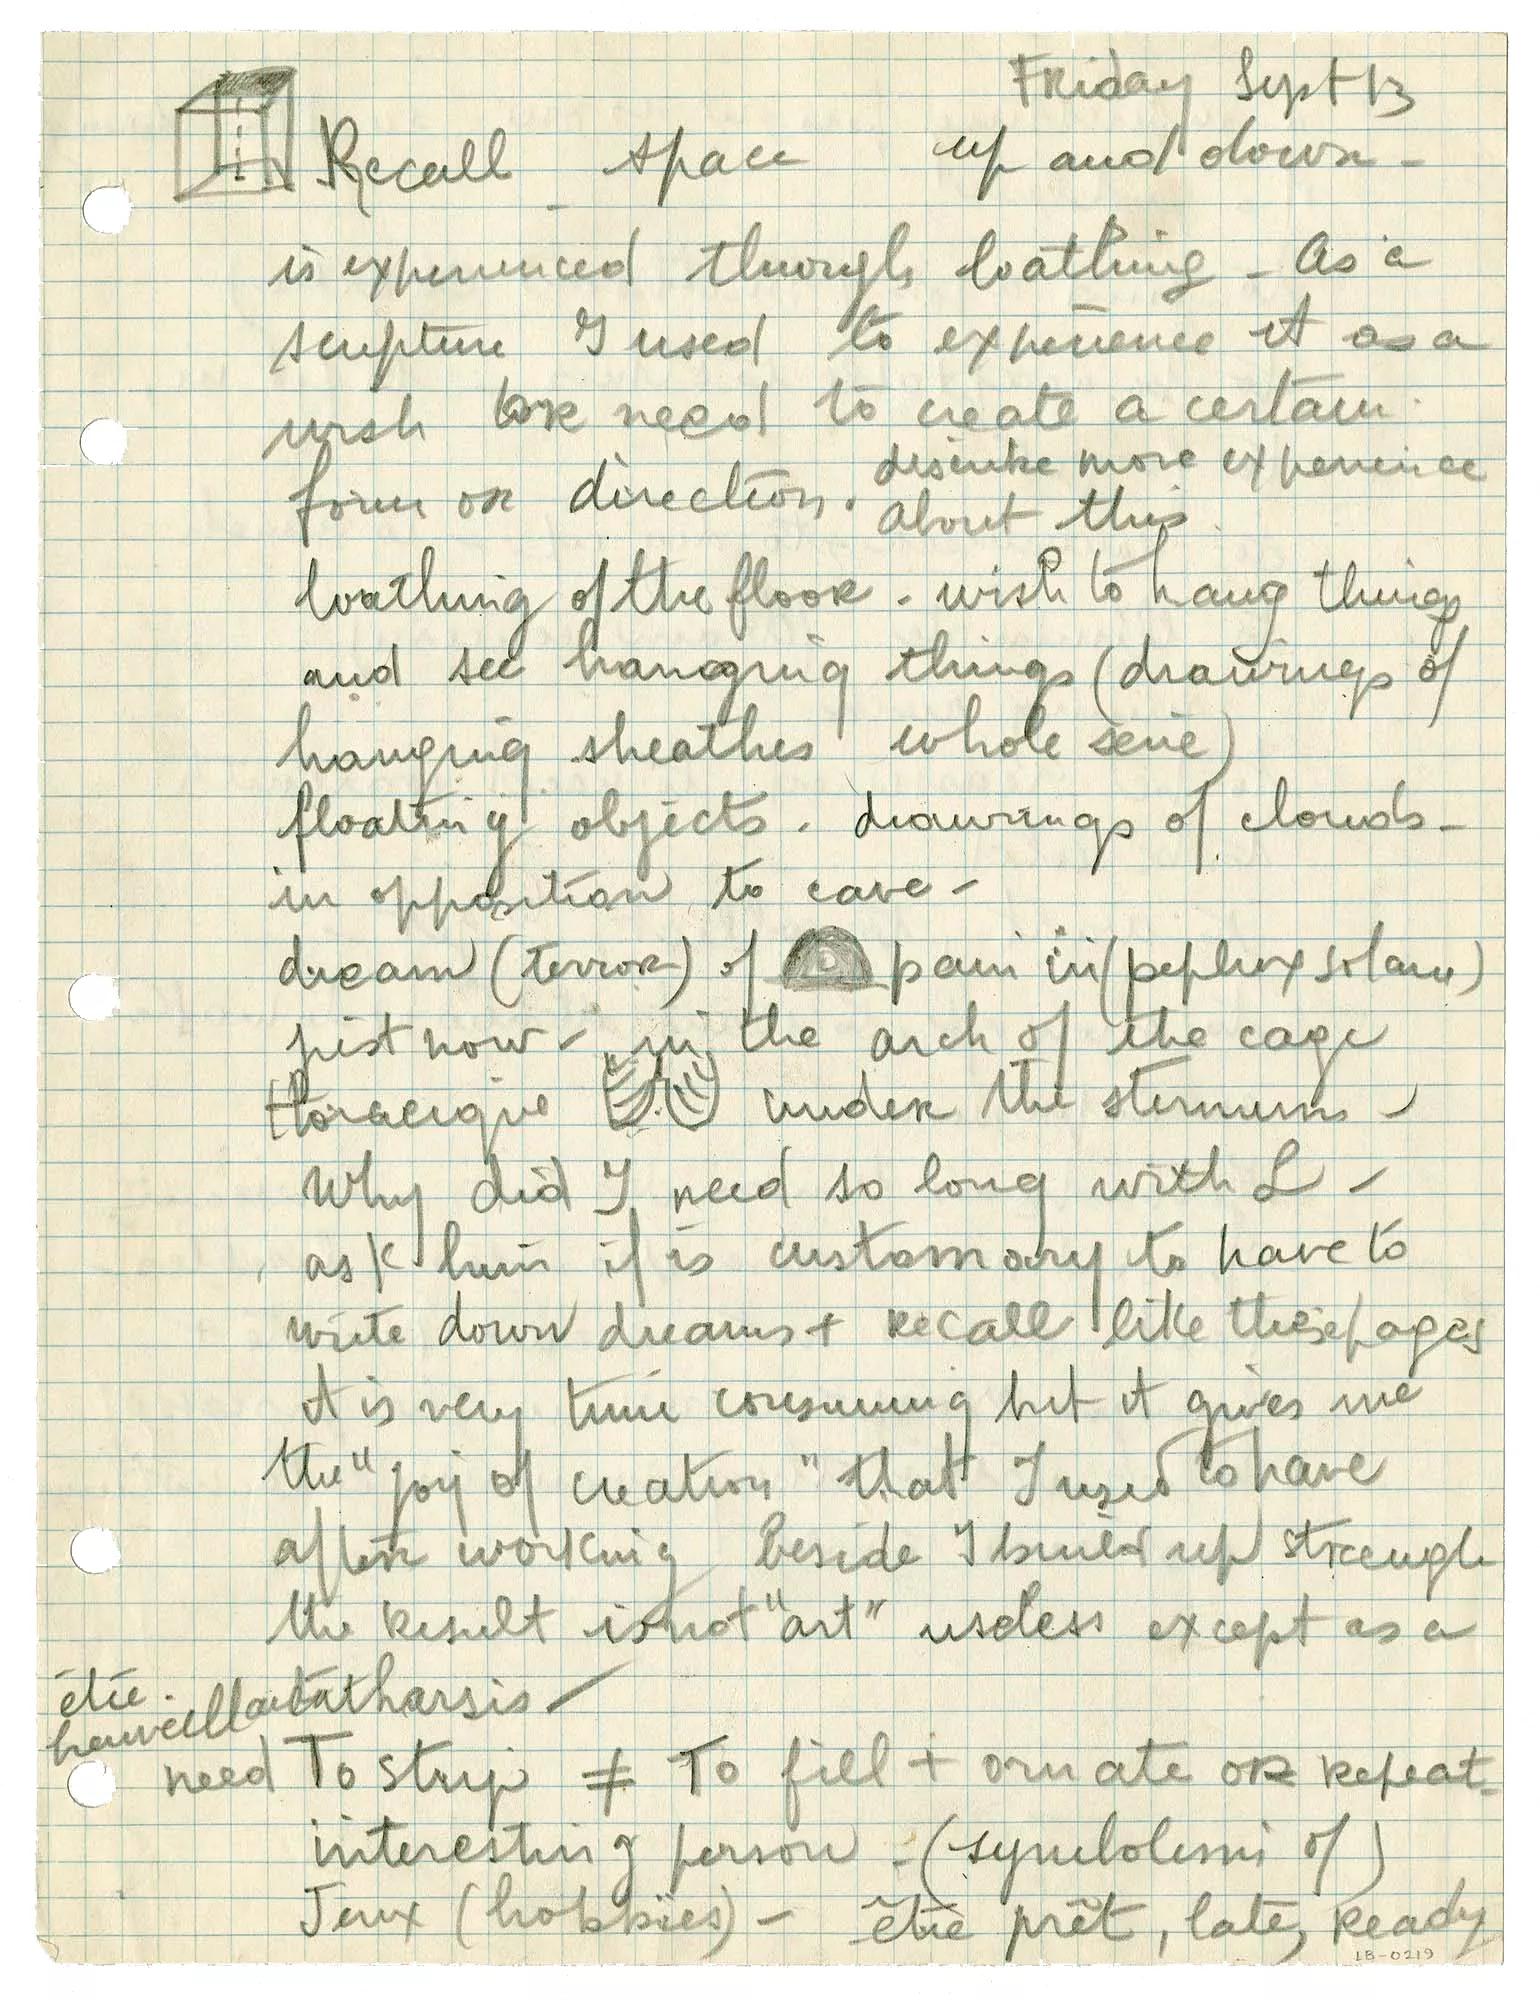 Friday Sept 13
Recall _ space up and down -
is experienced through loathing - As a
sculpture I used to experience it as a
wish or need to create a certain
form or direction.
describe more experience
about this.
loathing of the floor. wish to hang things
and see hanging things (drawings of
hanging sheathes whole serie)
floating objects. drawings of clouds -
in opposition to cave -
dream (terror) of pain in (pephux solaire)
just now - in the arch of the cage
thoracique under the sternum -
Why did I need so long with L -
ask him if is customary to have to
write down dreams + recall like these pages
it is very time consuming but it gives me
the "joy of creation" that I used to have
after working Beside I build up strength
the result is not "art" useless except as a
catharsis -
être
need To strip ≠ To fill + ornate or repeat -
interesting person - (symbolism of)
Jeux (hobbies) - être prêt, late, ready
LB-0219